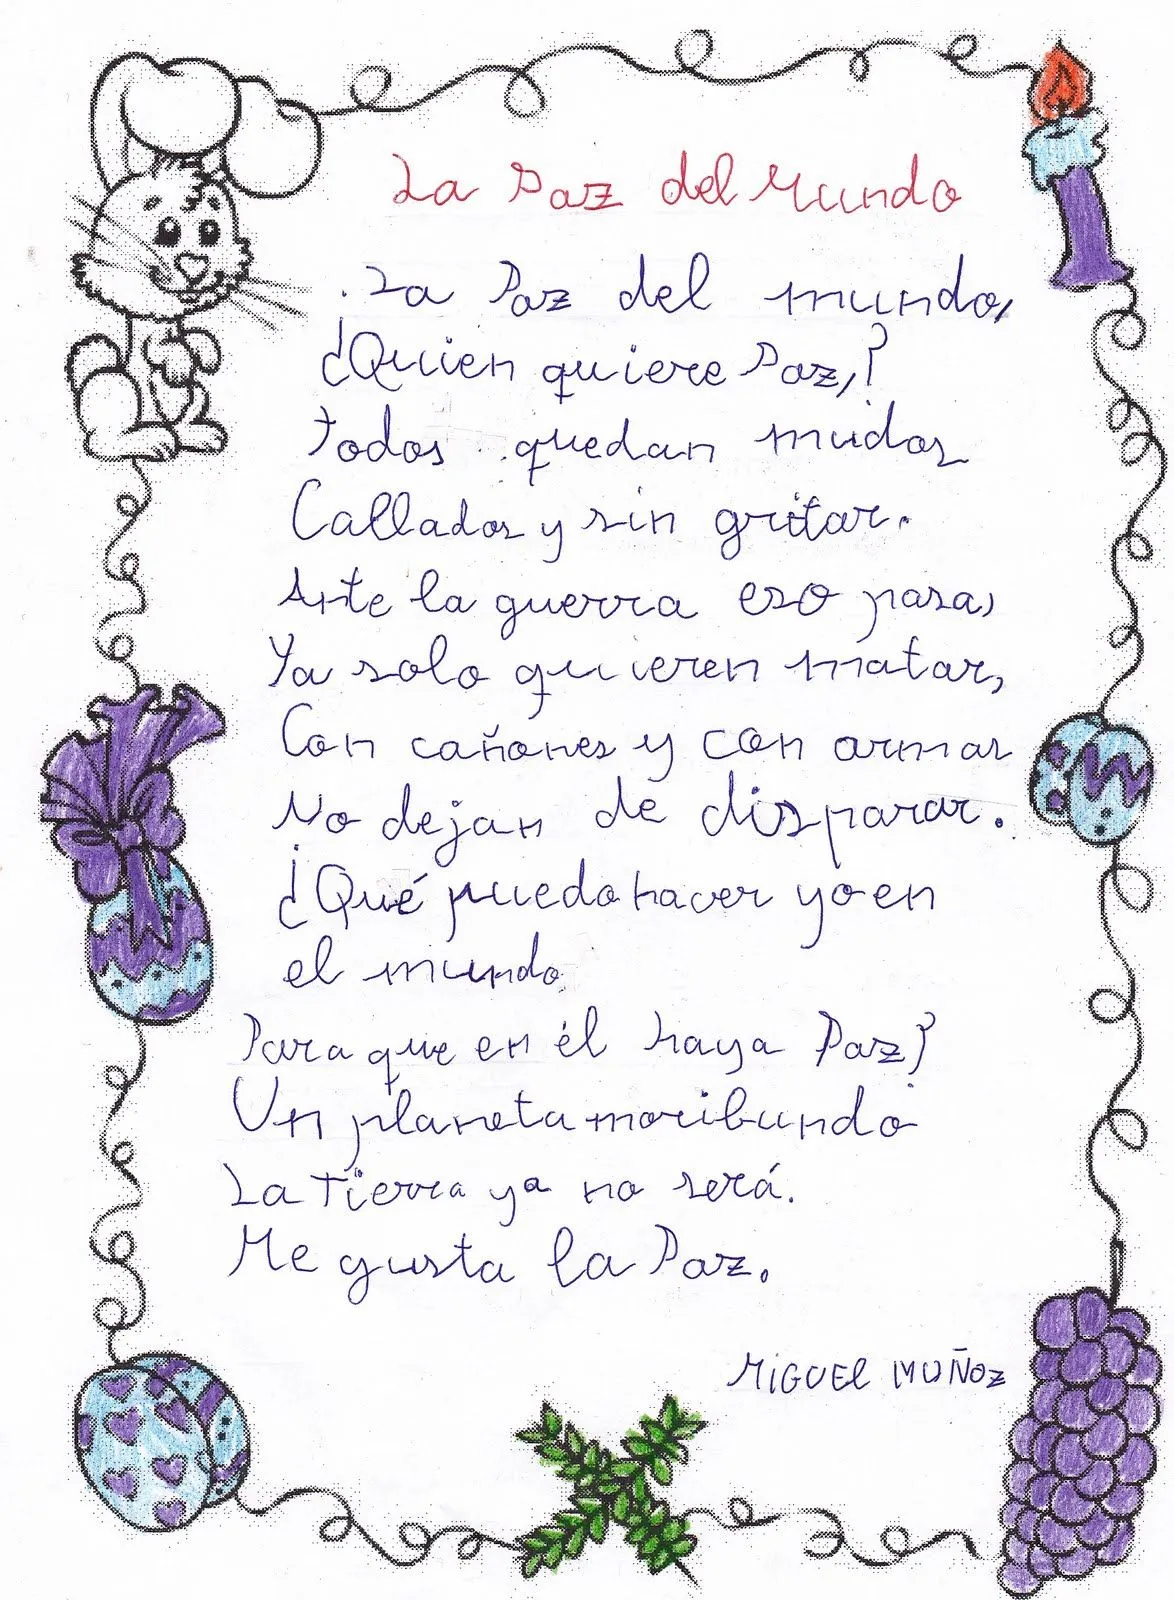 La Paz del Mundo
.La Paz del mundo,
¿Quien quiere Paz,?
todos quedan mudos
Callados y sin gritar.
Ante la guerra eso pasa,
Ya solo quieren matar,
Con cañones y con armas
No dejan de disparar.
¿Qué puedo hacer yo en
el mundo
Para que en él haya Paz?
Un planeta moribundo
La Tierra ya no será.
Me gusta la Paz.
MIGUEL MUÑOZ